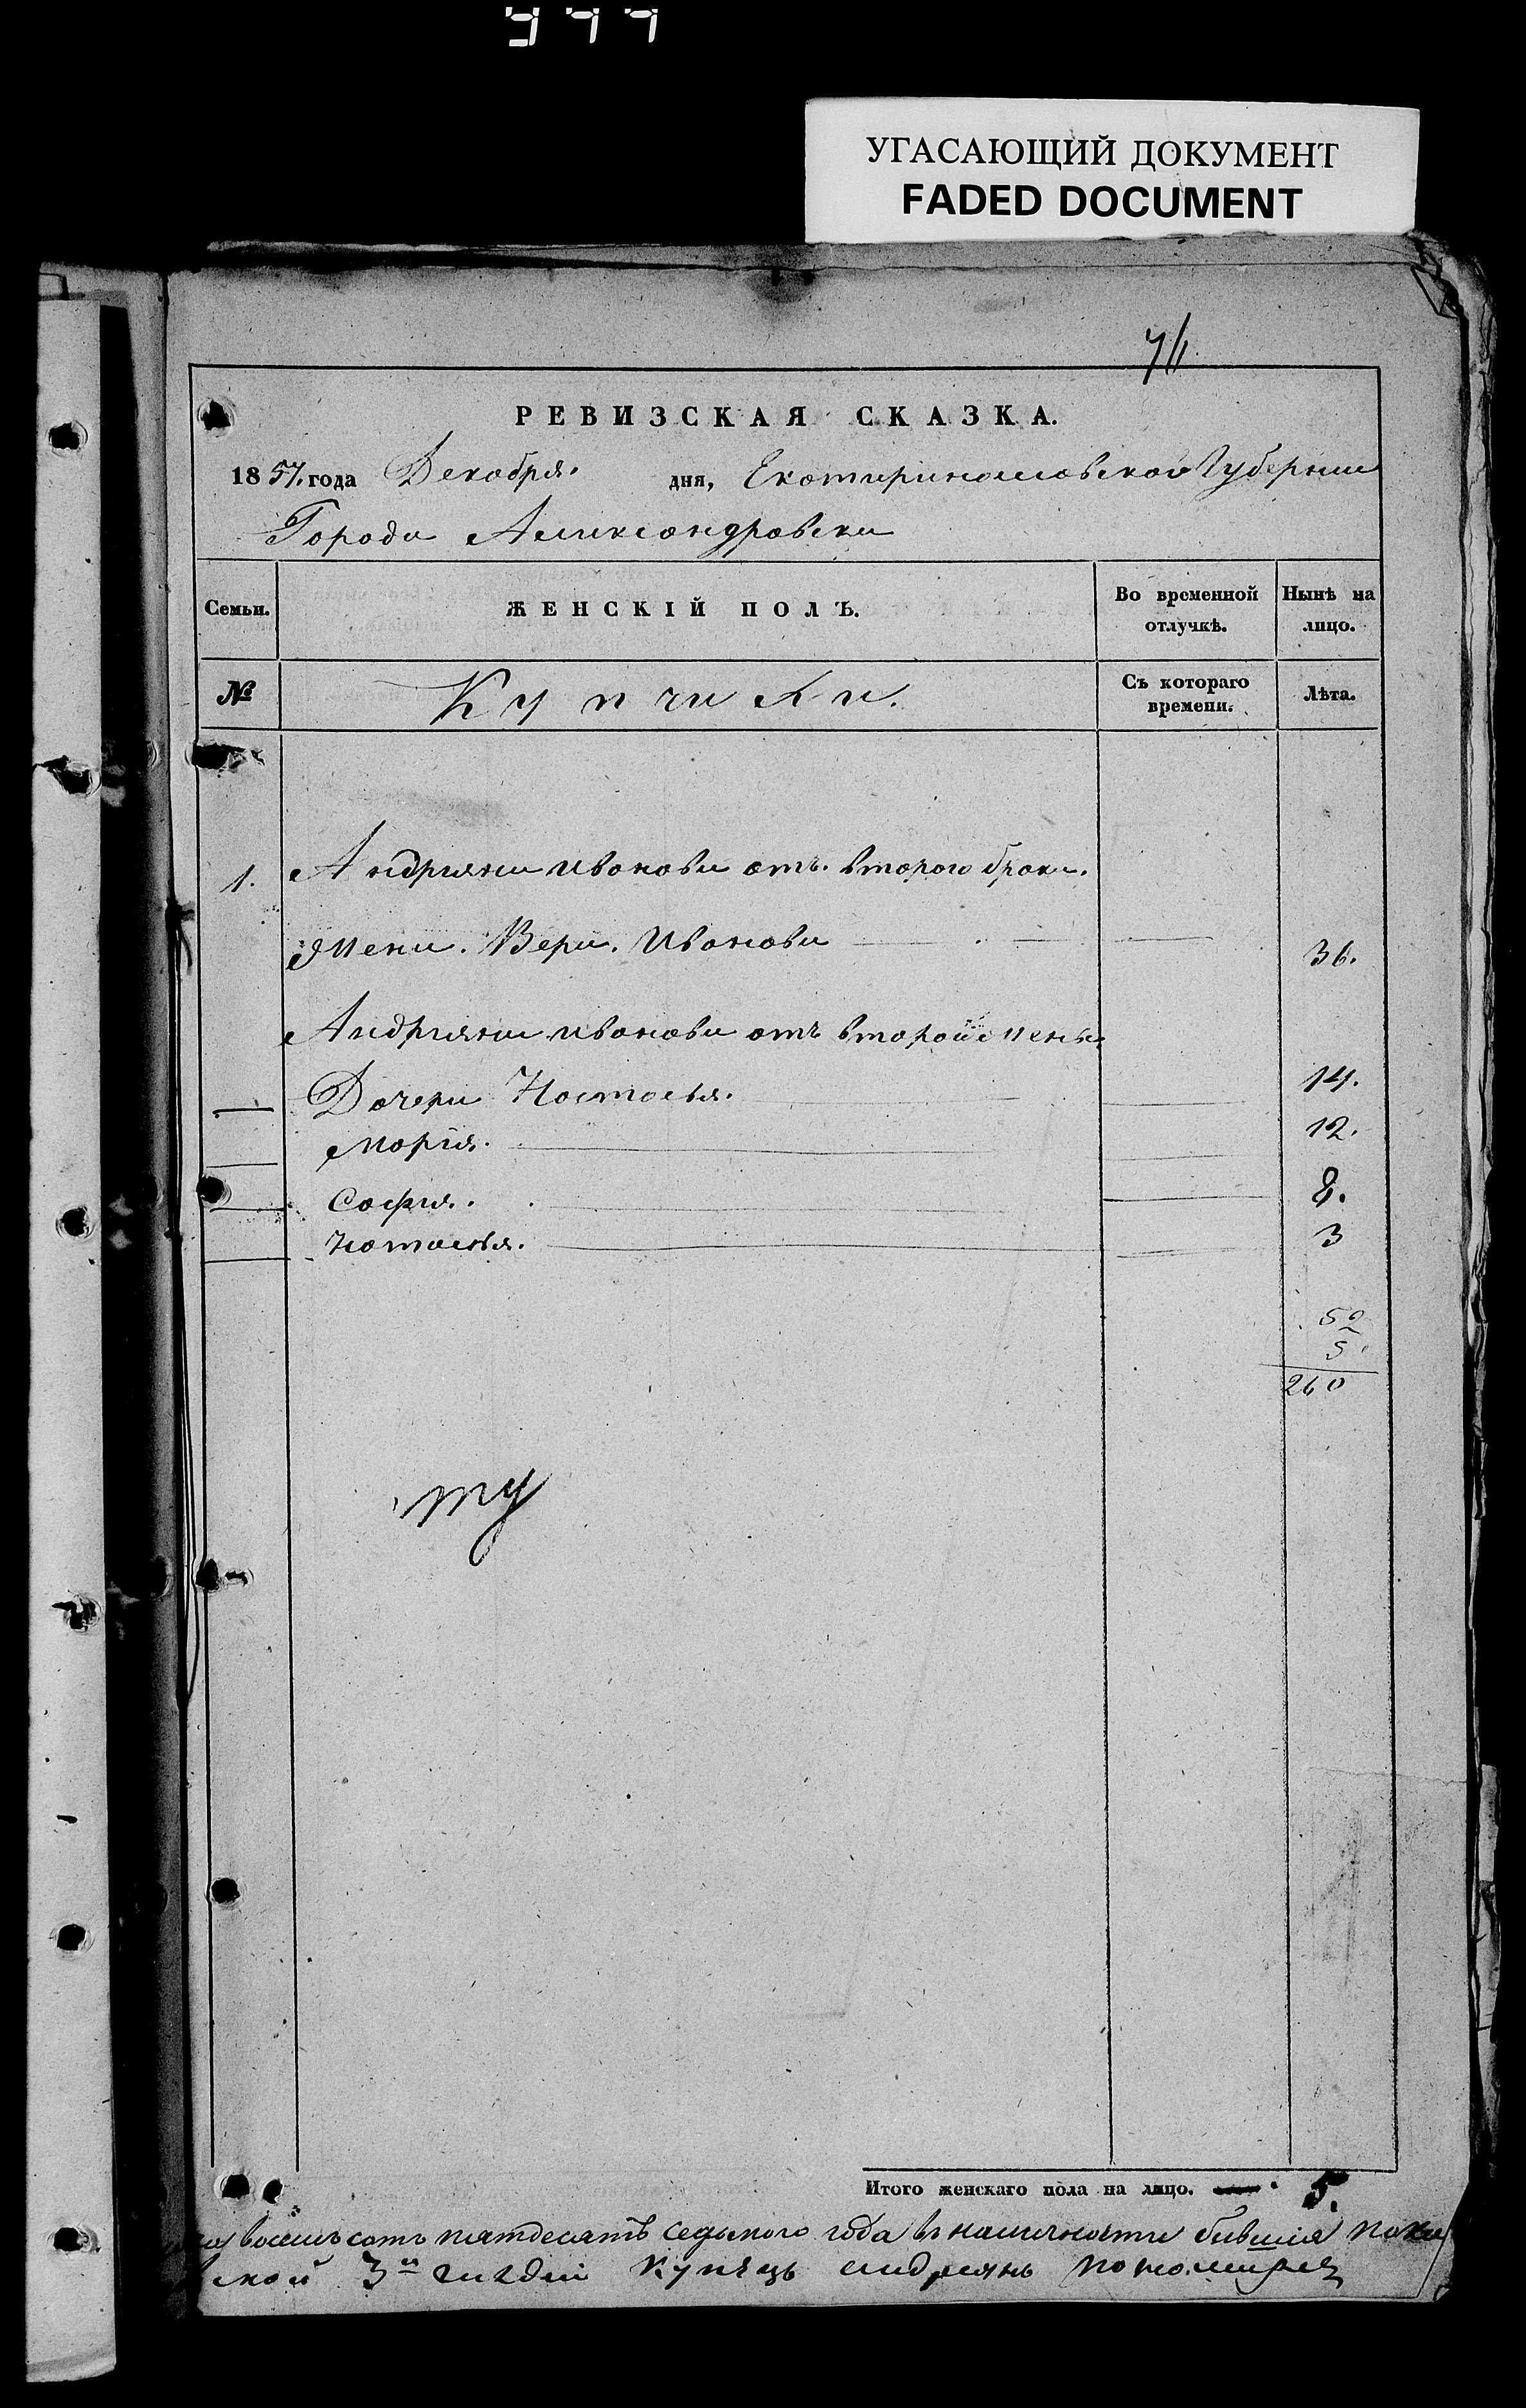 УГАСАЮЩИЙ ДОКУМЕНТ
FADED DOCUMENT
РЕВИЗСКАЯ СКАЗКА.
1857. года Декабря. дня, Екатеринославской Губернии
Города Александровска
Семьи. ЖЕНСКІЙ ПОЛЪ. Во временной отлучкѣ. Нынѣ на лицо.
№ Купчихи. Съ котораго времени. Лѣта.
1. Андрияна Иванова отъ. второго брака.
Жена. Вера. Иванова 36.
Андрияна Иванова отъ второй жены
Дочери Настасья. 14.
Марія. 12.
София. 8.
Наталья. 3
52
5
260
Итого женскаго пола на лицо. 5.
восемьсотъ пятдесятъ седьмого года въ наличности бывшия
3й гилдіи Купецъ андреянъ